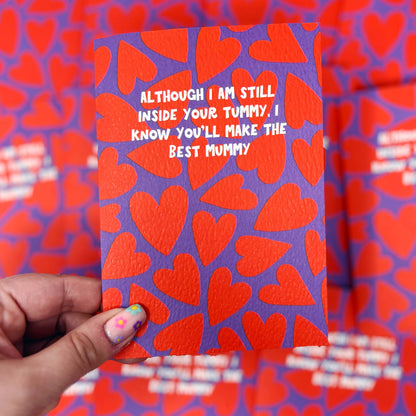 ALTHOUGH I AM STILL
INSIDE YOUR TUMMY, I
KNOW YOU'LL MAKE THE
BEST MUMMY